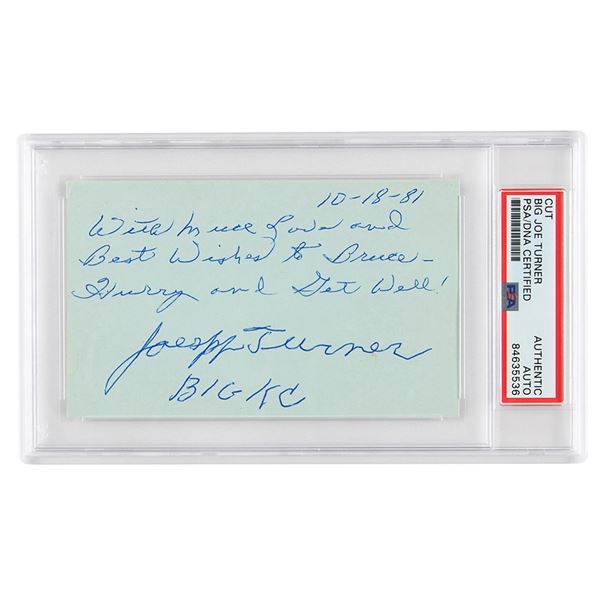 10-18-81
With much Love and
Best Wishes to Bruce-
Hurry and Get Well!
Joespp Turner
BIG KC
CUT
BIG JOE TURNER
PSA/DNA CERTIFIED
PSA
AUTHENTIC
AUTO
84635536